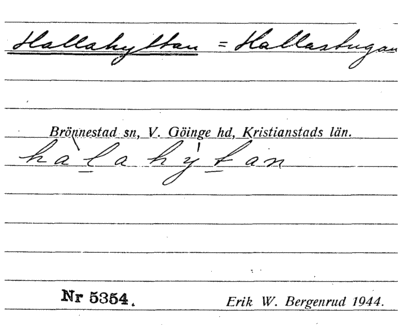 Hallahyltan = Hallastugan
Brönnestad sn, V. Göinge hd, Kristianstads län.
hàlahýtan
Nr 5354.
Erik W. Bergenrud 1944.